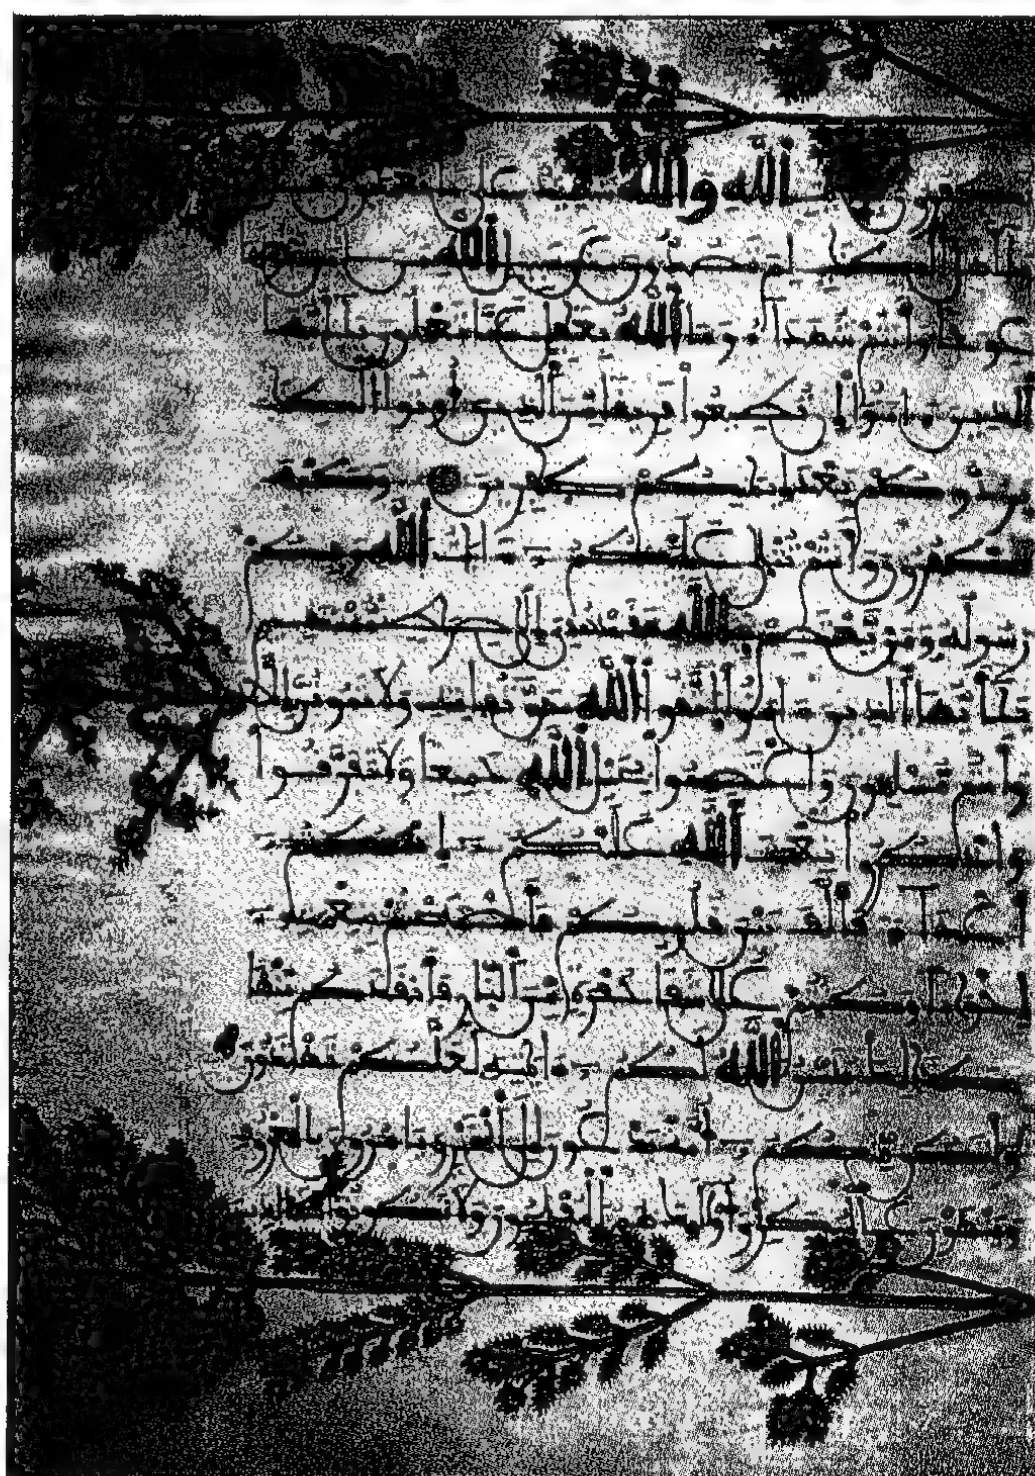 الله والله شهيد على ما تعملون
قل يأهل الكتب لم تصدون عن سبيل الله من ءامن
تبغونها عوجا وأنتم شهداء وما الله بغفل عما تعملون يأيها
الذين ءامنوا إن تطيعوا فريقا من الذين أوتوا الكتا
ب يردوكم بعد إيمنكم كفرين وكيف
تكفرون وأنتم تتلى عليكم ءايت الله وفيكم
رسوله ومن يعتصم بالله فقد هدي إلى صرط مستقيم
يأيها الذين ءامنوا اتقوا الله حق تقاته ولا تموتن إلا
وأنتم مسلمون واعتصموا بحبل الله جميعا ولا تفرقوا
واذكروا نعمت الله عليكم إذ كنتم
أعداء فألف بين قلوبكم فأصبحتم بنعمته
إخونا وكنتم على شفا حفرة من النار فأنقذكم منها
كذلك يبين الله لكم ءايته لعلكم تهتدون
ولتكن منكم أمة يدعون إلى الخير ويأمرون بالمعرو
ف وينهون عن المنكر وأولئك هم المفلحون ولا تكونوا كالذ